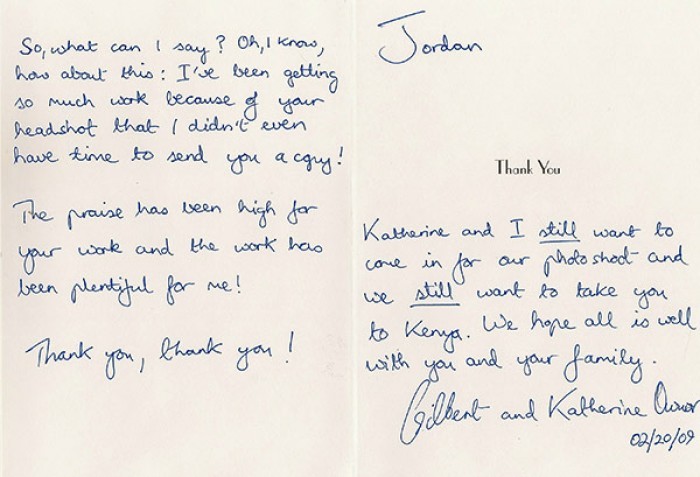 So, what can I say? Oh, I know,
how about this: I've been getting
so much work because of your
headshot that I didn't even
have time to send you a copy!
The praise has been high for
your work and the work has
been plentiful for me!
Thank you, thank you!
Jordan
Thank You
Katherine and I still want to
come in for our photo shoot and
we still want to take you
to Kenya. We hope all is well
with you and your family.
Gilbert and Katherine
02/20/09